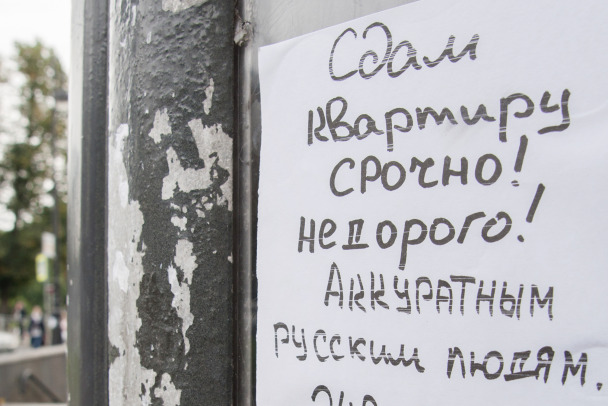 Сдам
квартиру
срочно!
недорого!
Аккуратным
русским людям.